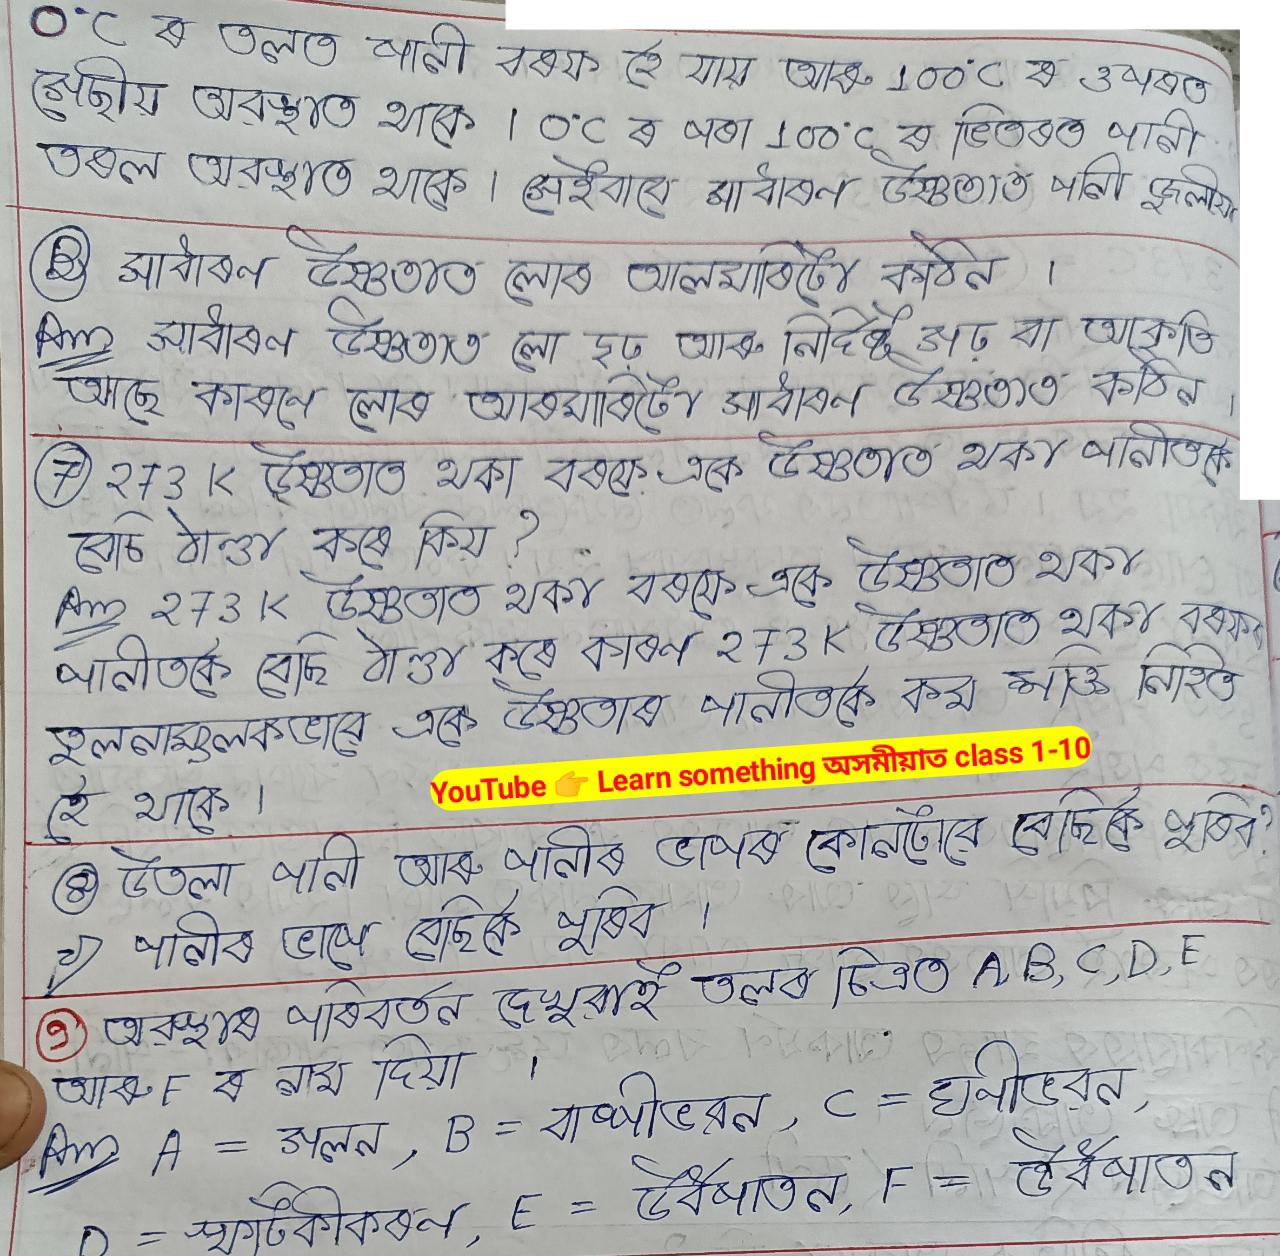 0°C ৰ তলত পানী বৰফ হৈ যায় আৰু 100°C ৰ ওপৰত
গেছীয় অৱস্থাত থাকে । 0°C ৰ পৰা 100°C ৰ ভিতৰত পানী
তৰল অৱস্থাত থাকে । সেইবাবে সাধাৰণ উষ্ণতাত পানী জুলীয়া
সাধাৰণ উষ্ণতাত লোৰ আলমাৰিটো কঠিন ।
Ans সাধাৰণ উষ্ণতাত লো দৃঢ় আৰু নিৰ্দিষ্ট গঢ় বা আকৃতি
আছে কাৰণে লোৰ আৰমাৰিটো সাধাৰণ উষ্ণতাত কঠিন ।
7 273 K উষ্ণতাত থকা বৰফে একে উষ্ণতাত থকা পানীতকৈ
বেচি ঠাণ্ডা কৰে কিয় ?
Ans 273 K উষ্ণতাত থকা বৰফে একে উষ্ণতাত থকা
পানীতকৈ বেছি ঠাণ্ডা কৰে কাৰণ 273 K উষ্ণতাত থকা বৰফৰ
তুলনামূলকভাবে একে উষ্ণতাৰ পানীতকৈ কম শক্তি নিহিত
হৈ থাকে ।
YouTube 👉 Learn something অসমীয়াত class 1-10
8 উতলা পানী আৰু পানীৰ ভাপৰ কোনটোৱে বেছিকৈ পুৰিব?
পানীৰ ভাপে বেছিকৈ পুৰিব ।
9 অৱস্থাৰ পৰিবৰ্তন দেখুৱাই তলৰ চিত্ৰত A, B, C, D, E
আৰু F ৰ নাম দিয়া ।
Ans A = গলন, B = বাষ্পীভৱন, C = ঘনীভৱন,
D = স্ফটিকীকৰণ, E = উৰ্ধপাতন, F = উৰ্ধপাতন